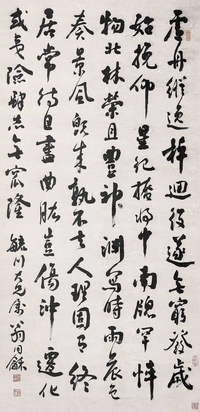 虛舟縱逸棹迴復遂無窮發歲
始俛仰星紀掩將中南牖罕悴
物北林榮且豐神淵寫時雨晨色
奏景風既來孰不去人理固有終
居常待其盡曲肱豈傷沖遷化
或夷險肆志無窊隆 毓川大兄屬 翁同龢